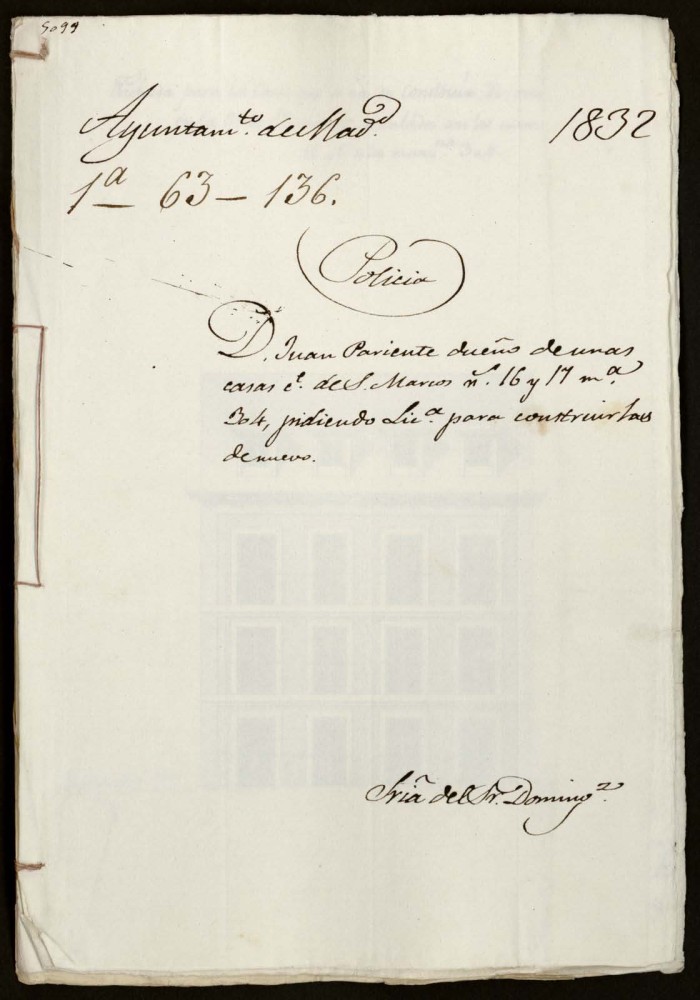 5099
Ayuntam.to de Mad.d 1832
1a – 63 – 136.
Policia
D. Juan Pariente dueño de unas
casas c.e de S. Marcos n.s 16 y 17 m.a
304, pidiendo Lic.a para construirlas
de nuevo.
Sria del Sr. Doming.z